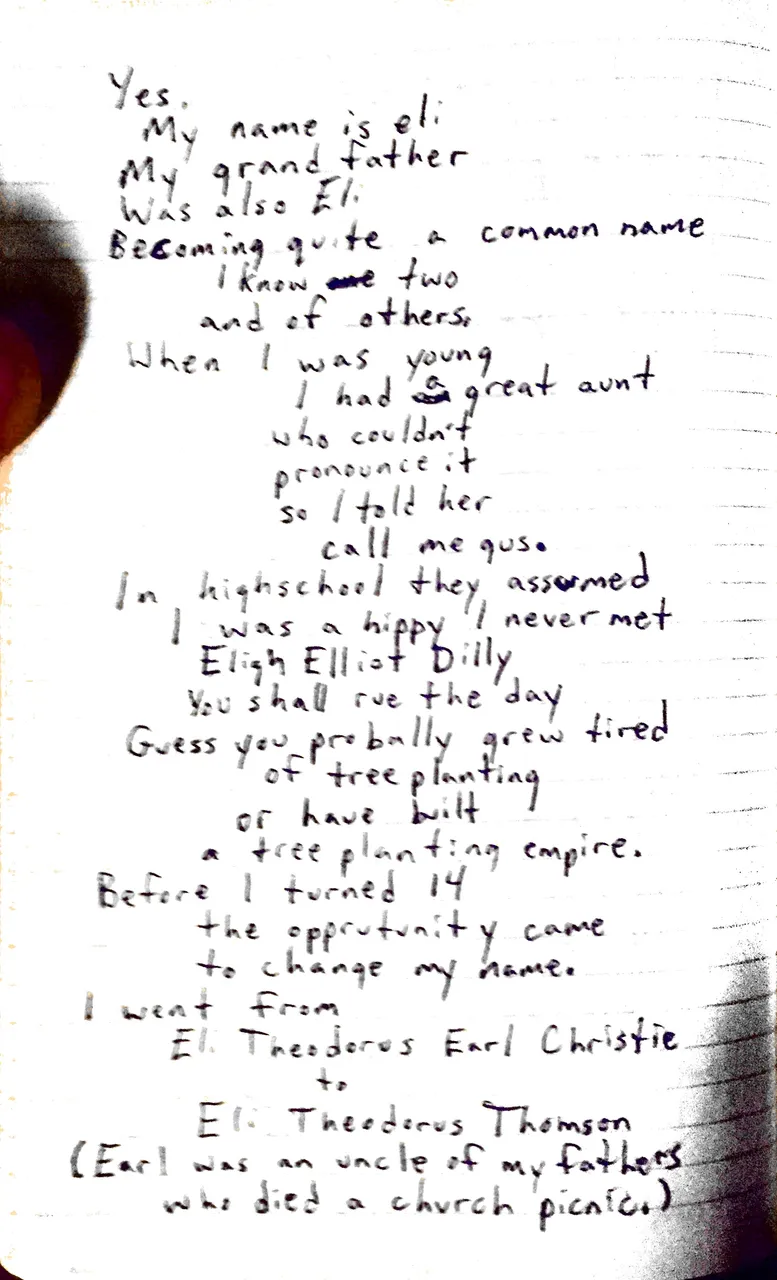 Yes.
My name is eli
My grand father
Was also Eli
Becoming quite a common name
I know one two
and of others.
When I was young
I had a great aunt
who couldn't
pronounce it
so I told her
call me gus.
In highschool they assumed
I was a hippy I never met
Eligh Elliot Dilly
You shall rue the day
Guess you probally grew tired
of tree planting
or have built
a tree planting empire.
Before I turned 14
the opprutunity came
to change my name.
I went from
Eli Theodorus Earl Christie
to
Eli Theodorus Thomson
(Earl was an uncle of my fathers
who died a church picnic.)